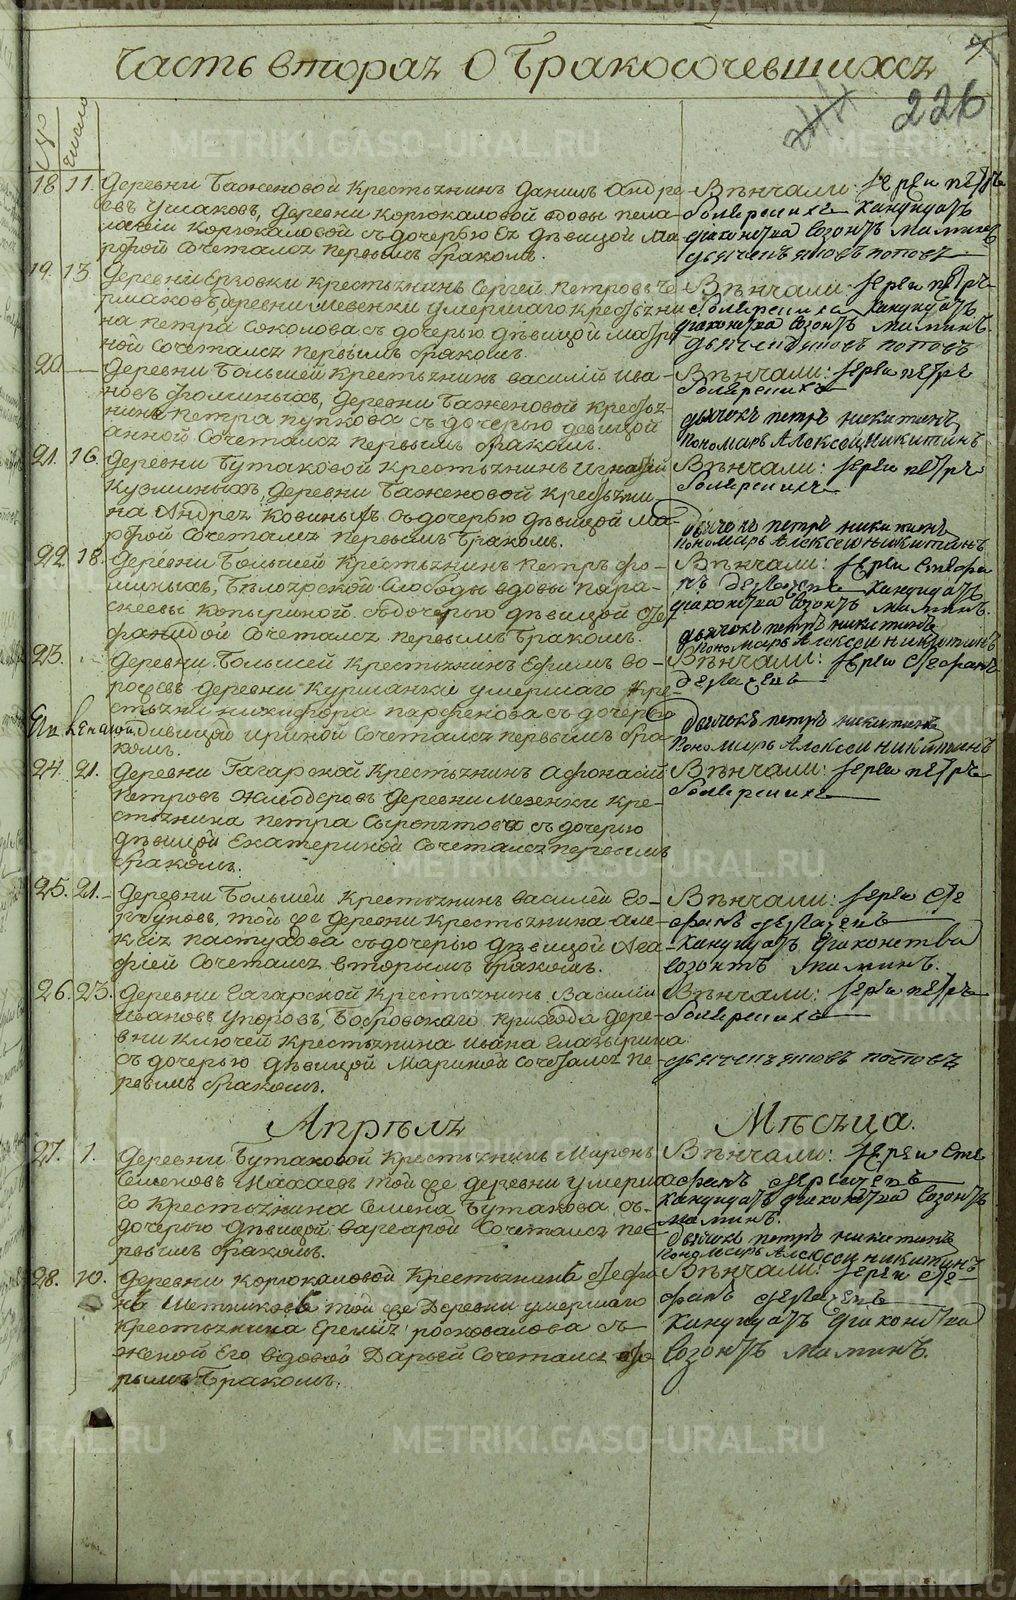 Часть вторая О бракосочевшихся
226
№
число
18. 11. Деревни Баженовой крестьянинъ Данилъ Андре
евъ Ушаковъ, деревни Корюкаловой вдовы пела
гѣи Корюкаловой съ дочерью Ея дѣвицой Ма
рфой Сочетался первымъ бракомъ.
Вѣнчали: Iерей петръ
Кандидатъ
дiаконства Созонтъ Маминъ
дьячекъ яковъ поповъ
19. 13. Деревни Ерзовки крестьянинъ Сергей Петровъ Че
рмаковъ, деревни Мезенки умершаго крестьяни
на петра Соколова съ дочерью дѣвицой Матре
ной Сочетался первымъ бракомъ.
Вѣнчали: Iерей петръ
Кандидатъ
дiаконства Созонтъ Маминъ.
дьячекъ яковъ поповъ
20. Деревни Большей Крестьянинъ василiй Ива
новъ фоминыхъ, деревни Баженовой крестья
нина петра пупкова съ дочерью девицой
анной Сочетался первымъ бракомъ.
Вѣнчали: Iерей петръ
дьячокъ петръ никитинъ
пономарь Алексей Никитинъ
21. 16. Деревни Бутаковой крестьянинъ игнатiй
Кузминыхъ, деревни Баженовой крестьяни
на Андрея Ковиныхъ съ дочерью дѣвицой Ма
рфой Сочетался первымъ бракомъ.
Вѣнчали: Iерей петръ
дьячокъ петръ никитинъ
пономарь Алексей никитинъ
22. 18. Деревни Большей крестьянинъ петръ фо
миныхъ, Белоярской Слободы вдовы пара
скеевы Копыриной съ дочерью дѣвицой Сте
фанидой Сочетался первымъ бракомъ.
Вѣнчали: Iерей Стефа
нъ Кандидатъ
дiаконства Созонтъ Маминъ.
дьячокъ петръ никитинъ
пономарь Алексей никитинъ
23. Деревни Большей Крестьянинъ Ефимъ До
рофеевъ деревни Курманки умершаго кре
стьяни никифора парфенова съ дочерью
дивицой ириной Сочетался первымъ бра
комъ.
Вѣнчали: Iерей Стефанъ
дьячокъ петръ никитинъ
пономарь Алексеи никитинъ
24. 21. Деревни Гагарской Крестьянинъ Афонасiй
петровъ Жмодеровъ деревни Мезенки кре
стьянина петра Сыропятова съ дочерью
дѣвицой Екатериной Сочетался первымъ
бракомъ.
Вѣнчали: Iерей петръ
25. 21. Деревни Большей Крестьянинъ василей Го
рбуновъ, той же деревни крестьянина але
ксiя пастухова съ дочерью дѣвицой Ага
фiей Сочетался вторымъ бракомъ.
Вѣнчали: Iерей Сте
фанъ
Кандидатъ дiаконства
Созонтъ Маминъ.
26. 23. Деревни Гагарской Крестьянинъ Василiй
Ивановъ упоровъ, Бобровскаго прихода дере
вни ключей крестьянина ивана глазырина
съ дочерью дѣвицой Мариной Сочетался пе
рвымъ бракомъ.
Вѣнчали: Iерей петръ
дьячекъ яковъ поповъ
Апрѣля Мѣсяца.
27. 1. Деревни Бутаковой крестьянинъ Миронъ
Семеновъ той же деревни умерша
го крестьянина Семена Бутакова, съ
дочерью дѣвицой варварой Сочетался пе
рвымъ бракомъ.
Вѣнчали: Iерей Сте
фанъ
кандидатъ дiаконства Созонтъ
Маминъ.
дьячокъ петръ никитинъ
пономарь Алексеи никитинъ
28. 10. Деревни Корюкаловой Крестьянинъ Стефа
нъ Шетниковъ той же Деревни умершаго
крестьянина Еремiя росковалова съ
женой Его вдовой Дарьей Сочетался вто
рымъ Бракомъ.
Вѣнчали: Iерей Сте
фанъ
Кандидатъ дiаконства
Созонтъ Маминъ.
METRIKI.GASO-URAL.RU